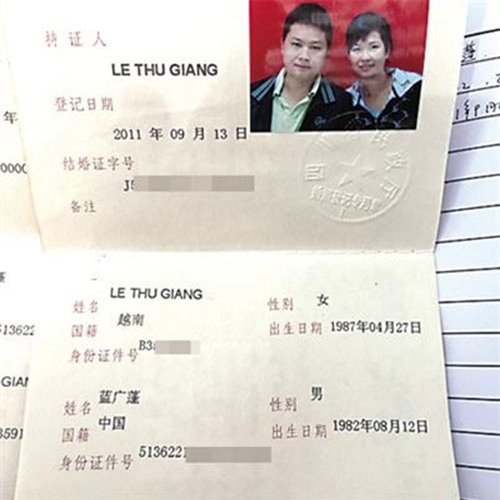 持证人
LE THU GIANG
登记日期
2011 年 09 月 13 日
结婚证字号
J5
备注
年
0000
LE THU GIANG
姓名
性别 女
国籍 越南
出生日期 1987年04月27日
身份证件号 B3
513622
GIAN
蓝广蓬
姓名
性别 男
国籍 中国
出生日期 1982年08月12日
身份证件号 5136221
3591